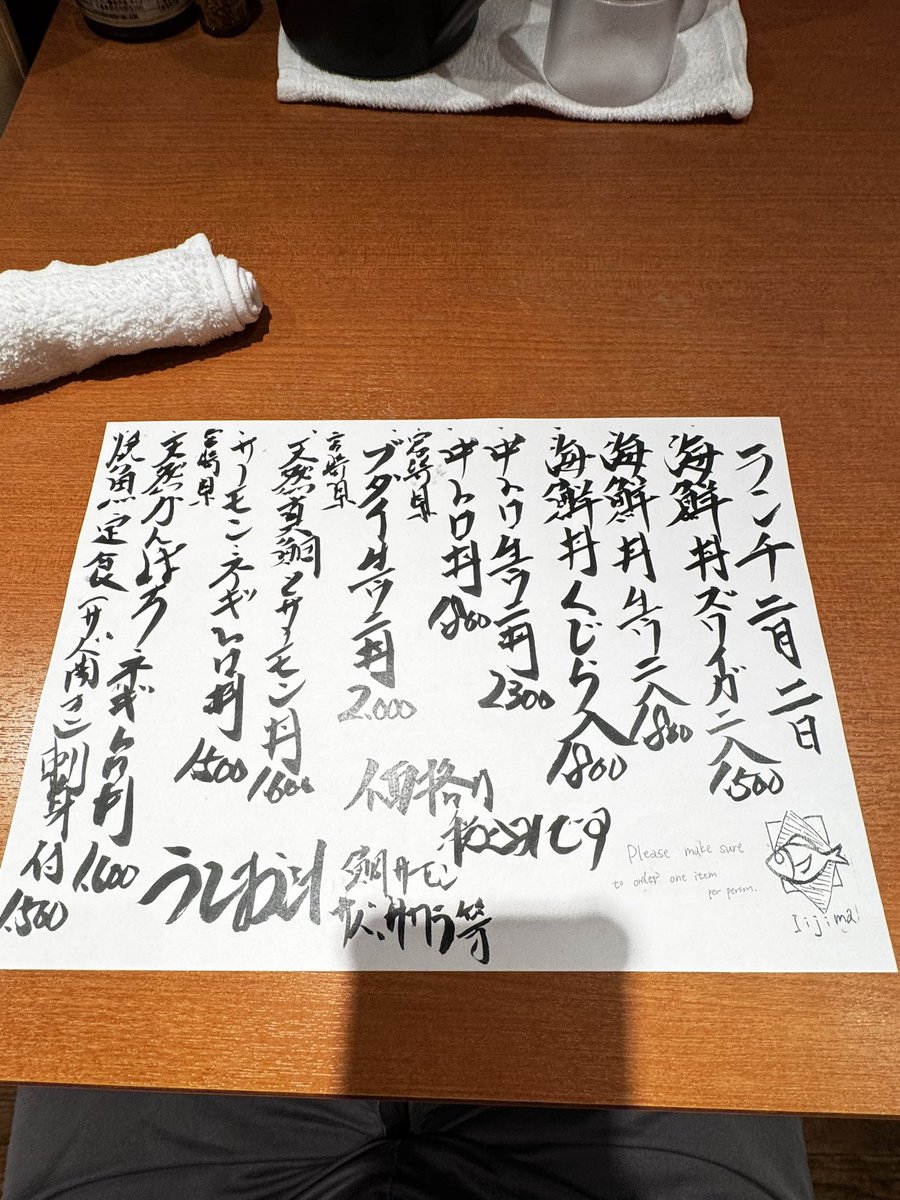 ランチ 二月 二日
海鮮丼ズワイガニ入 1,500
海鮮丼生ウニ入 1800
海鮮丼くじら入 1800
中トロ生ウニ丼 2300
中トロ丼 1800
宮崎県
ブダイ生ウニ丼 2.000
宮崎県
天然真鯛とサーモン丼 1.600
サーモンネギトロ丼 1500
宮崎県
天然かんぱちネギトロ丼 1.600
焼魚定食 刺身付 1.500
価格は
税込みです
鯛サーモン
等
Please make sure
to order one item
per person.
Iijima